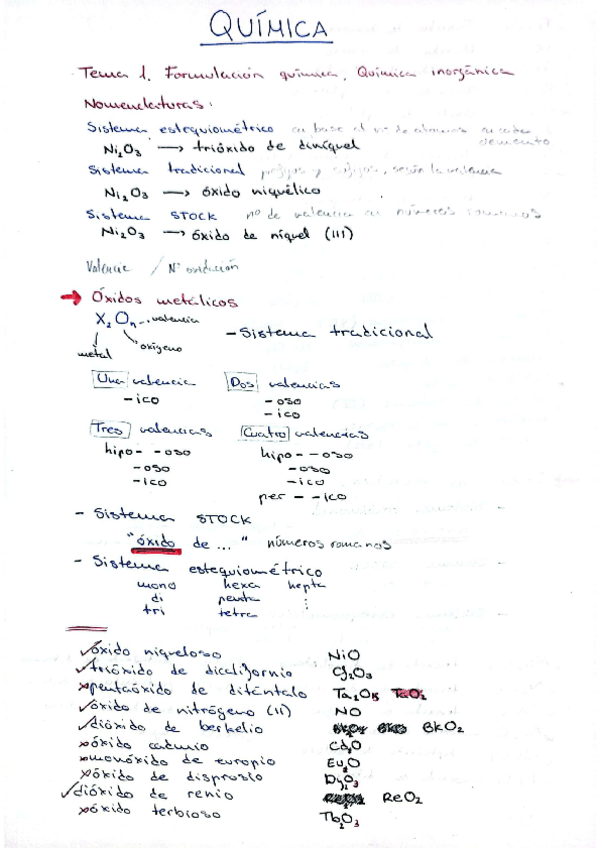 QUÍMICA
Tema 1. Formulación química. Química inorgánica
Nomenclaturas:
Sistema estequiométrico en base al nº de átomos en cada elemento
Ni₂O₃ → trióxido de diníquel
Sistema tradicional prefijos y sufijos, según la valencia
Ni₂O₃ → óxido niquélico
Sistema STOCK nº de valencia en números romanos
Ni₂O₃ → óxido de níquel (III)
Valencia / Nº oxidación
→ Óxidos metálicos
X₂Oₙ valencia
metal oxígeno
- Sistema tradicional
Una valencia Dos valencias
-ico -oso
-ico
Tres valencias Cuatro valencias
hipo- -oso hipo- -oso
-oso -oso
-ico -ico
per - -ico
- Sistema STOCK
"óxido de ..." números romanos
- Sistema estequiométrico
mono hexa hepta
di penta
tri tetra
✓óxido niqueloso NiO
✓trióxido de dicalifornio Cf₂O₃
×pentaóxido de ditántalo Ta₂O₅
✓óxido de nitrógeno (II) NO
✓dióxido de berkelio BkO₂
×óxido cadmio
×monóxido de europio Eu₂O
×óxido de disprosio Dy₂O₃
✓dióxido de renio ReO₂
×óxido terbioso Tb₂O₃